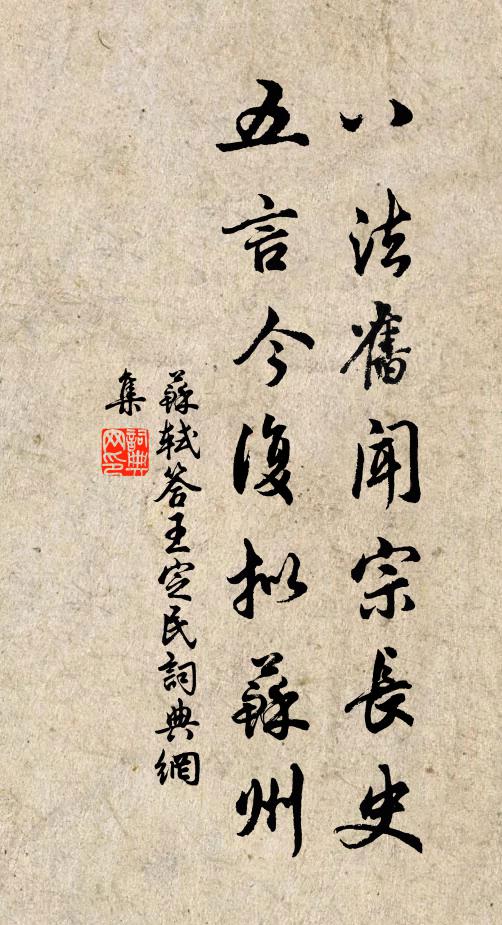 八法舊聞宗長史
五言今復擬蘇州
蘇軾答王定民詞典網
集
詞典
网印